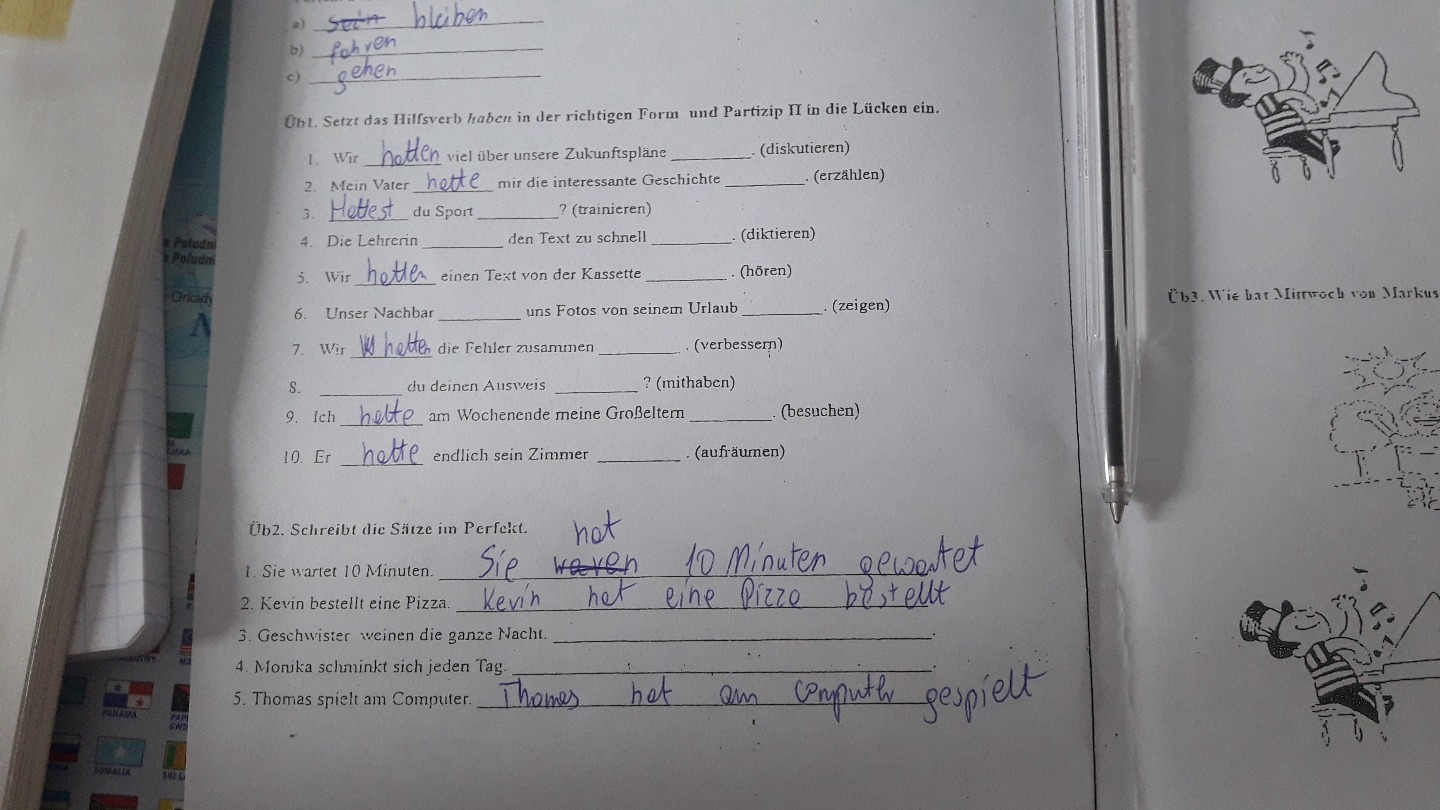 a) sein bleiben
b) fahren
c) gehen
Übt. Setzt das Hilfsverb haben in der richtigen Form und Partizip II in die Lücken ein.
1. Wir hatten viel über unsere Zukunftspläne ________. (diskutieren)
2. Mein Vater hatte mir die interessante Geschichte ________. (erzählen)
3. Hattest du Sport ________? (trainieren)
4. Die Lehrerin ________ den Text zu schnell ________. (diktieren)
5. Wir hatten einen Text von der Kassette ________. (hören)
6. Unser Nachbar ________ uns Fotos von seinem Urlaub ________. (zeigen)
7. Wir hatten die Fehler zusammen ________. (verbessern)
8. ________ du deinen Ausweis ________? (mithaben)
9. Ich hatte am Wochenende meine Großeltern ________. (besuchen)
10. Er hatte endlich sein Zimmer ________. (aufräumen)
Üb2. Schreibt die Sätze im Perfekt.
hat
1. Sie wartet 10 Minuten. Sie waren 10 Minuten gewartet
2. Kevin bestellt eine Pizza. Kevin hat eine Pizza bestellt
3. Geschwister weinen die ganze Nacht. ________.
4. Monika schminkt sich jeden Tag. ________.
5. Thomas spielt am Computer. Thomas hat am Computer gespielt
Üb3. Wie hat Mittwoch von Markus
Południ
Południ
Orkady
PANAMA
SOMALIA